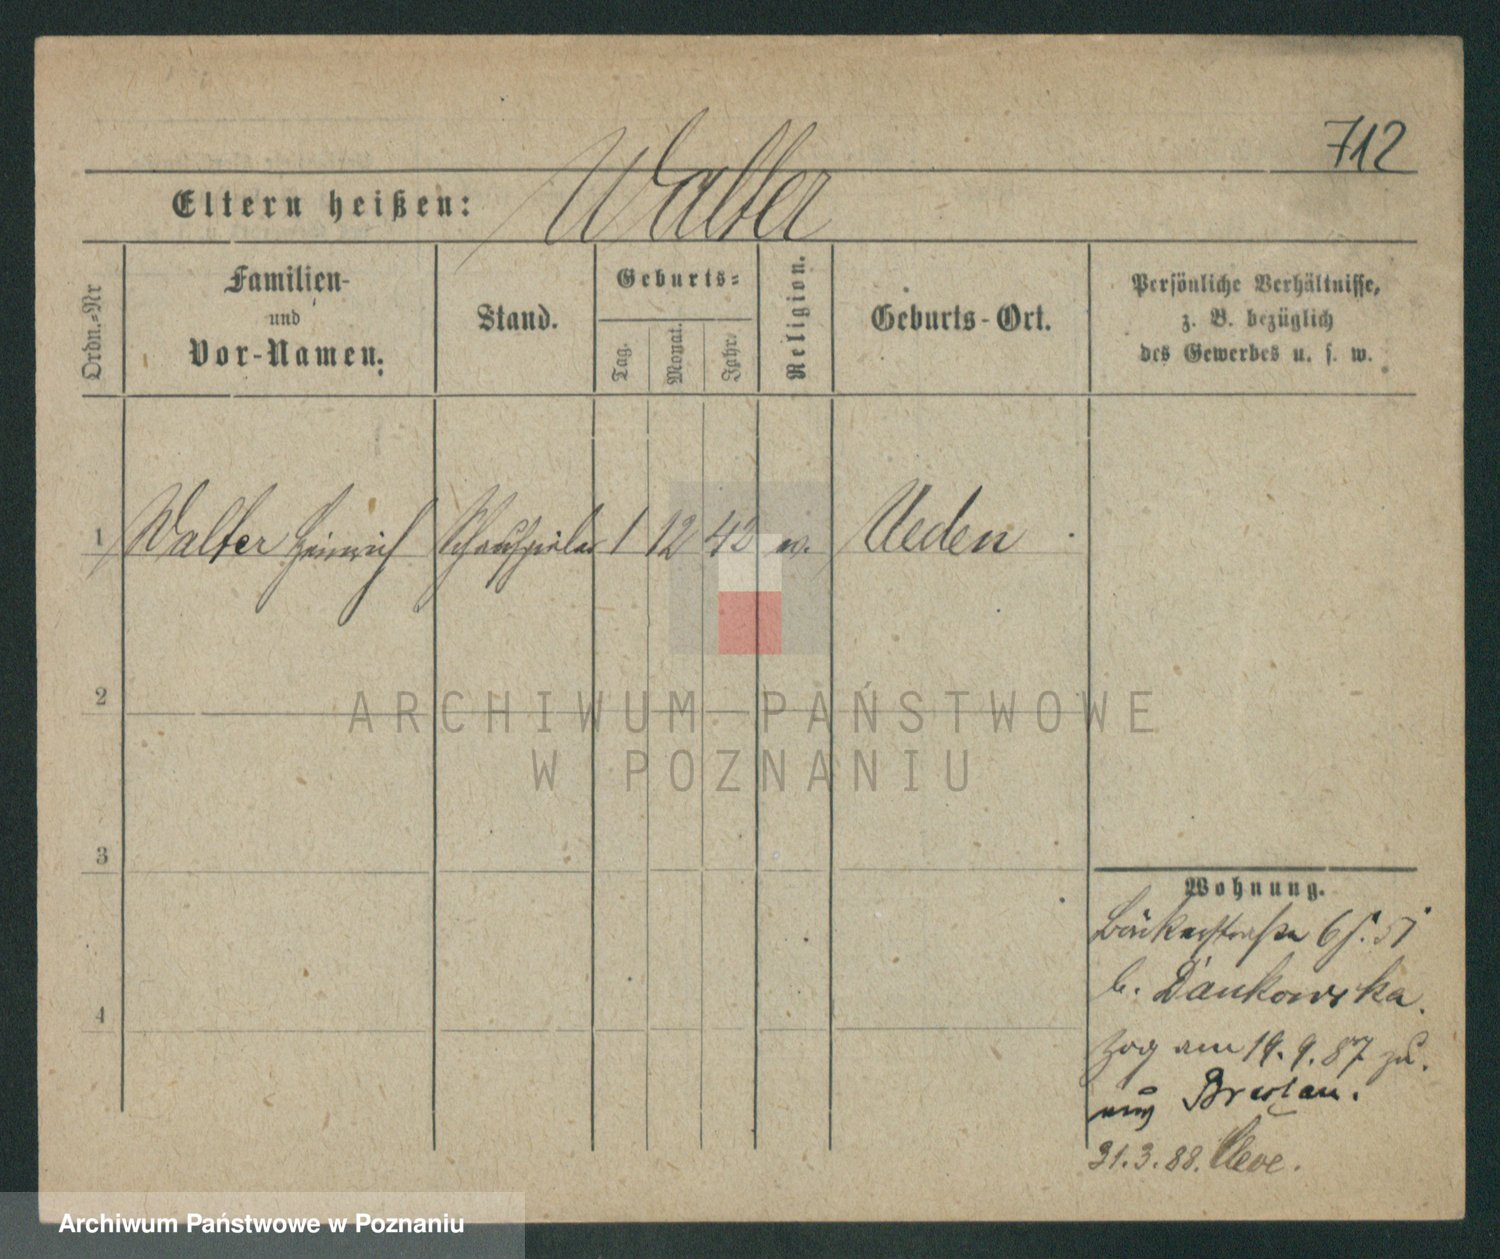 712
Eltern heißen: Walter
Ordn.-Nr
Familien-
und
Vor-Namen.
Stand.
Geburts-
Tag.
Monat.
Jahr.
Religion.
Geburts-Ort.
Persönliche Verhältnisse,
z. B. bezüglich
des Gewerbes u. s. w.
1 Walter Heinrich Schauspieler 1 12 42 Ueden
2
ARCHIWUM PAŃSTWOWE
W POZNANIU
3
4
Wohnung.
Bäckerstraße
b. Dankowska.
zog am 19.9.87 zu.
Breslau.
31.3.88. Cleve.
Archiwum Państwowe w Poznaniu